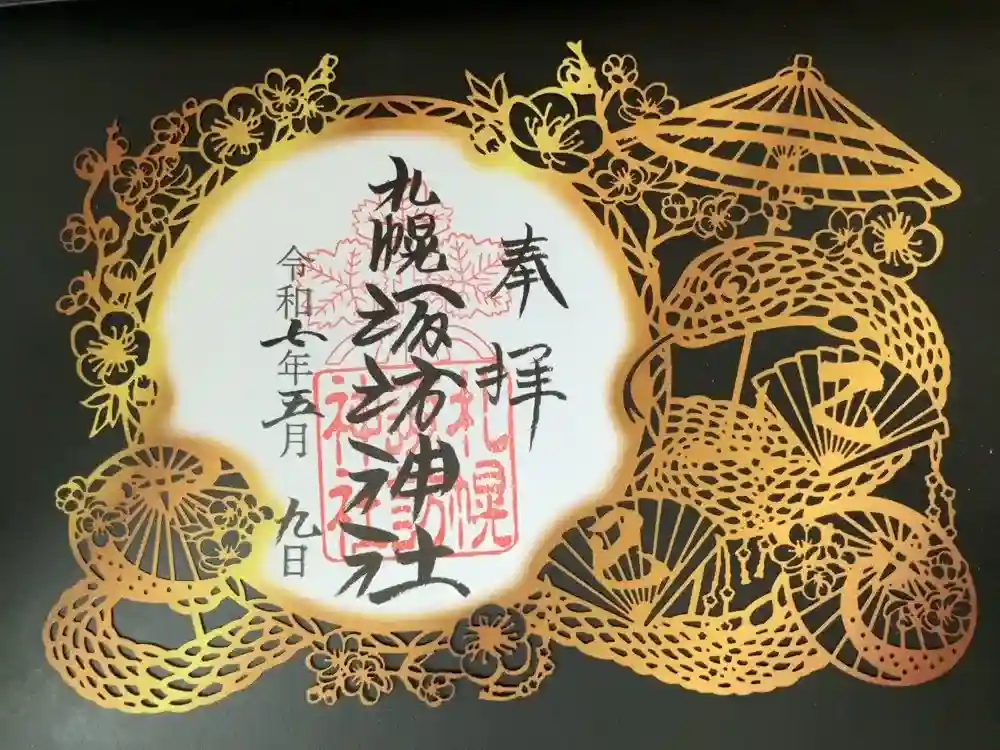 乙
巳
奉拝
札幌諏訪神社
令和七年五月九日
札幌
諏訪
神社